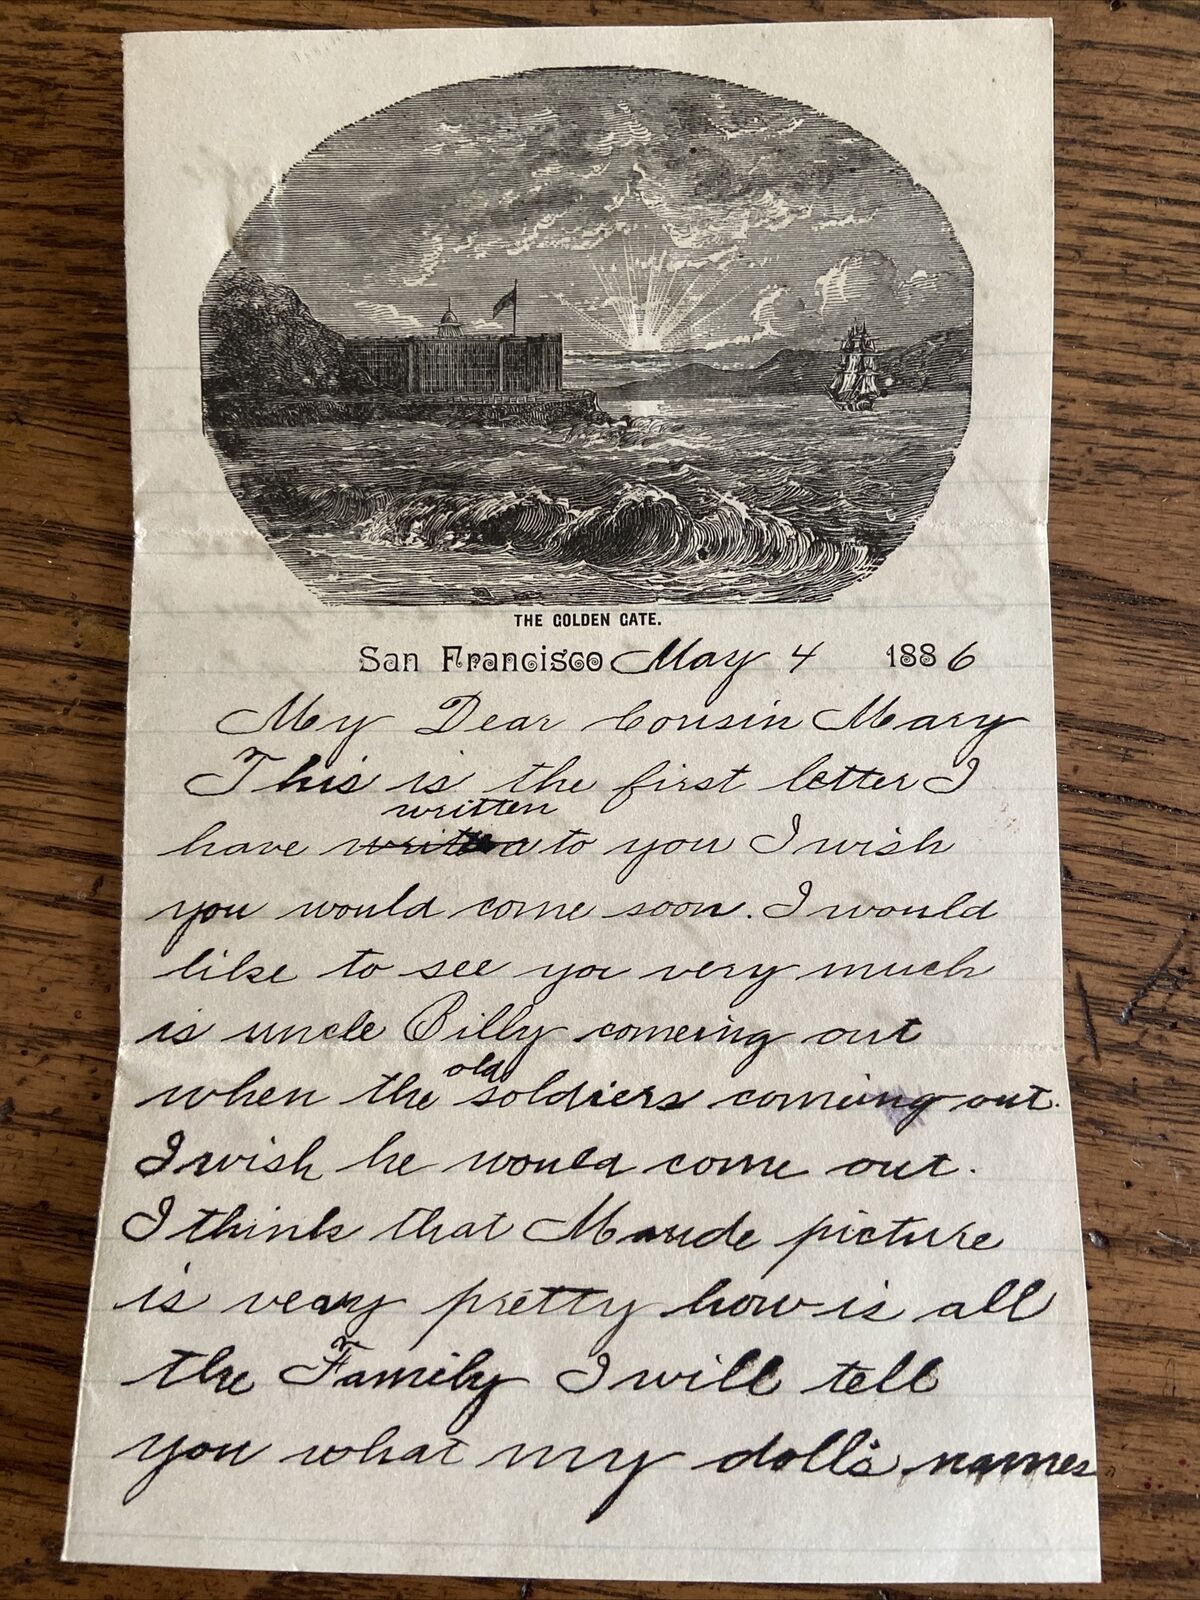 THE GOLDEN GATE.
San Francisco May 4 1886
My Dear Cousin Mary
This is the first letter I
written
have to you I wish
you would come soon. I would
like to see you very much
is uncle Billy comeing out
old
when the soldiers comeing out.
I wish he would come out.
I think that Maude picture
is veary pretty how is all
the Family I will tell
you what my doll's names